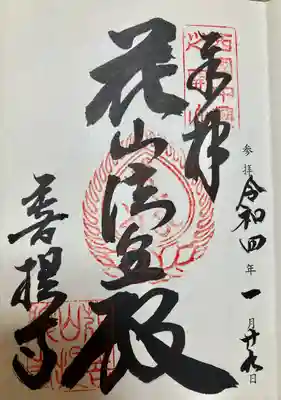 参拝 令和四年一月廿九日
奉拝
花山法皇殿
菩提寺